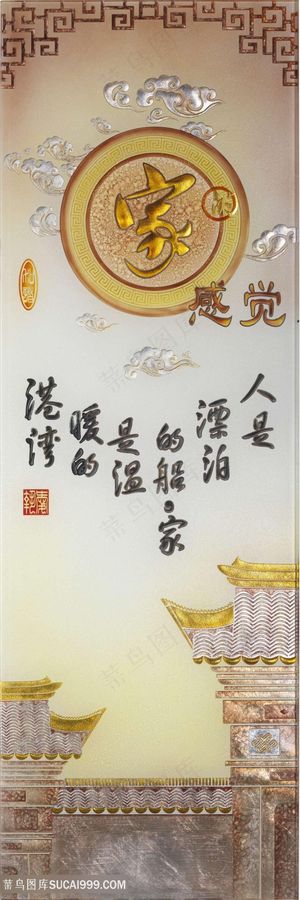 家
的
感觉
人是
漂泊
的船。家
是温
暖的
港湾
菜鸟图库SUCAI999.COM